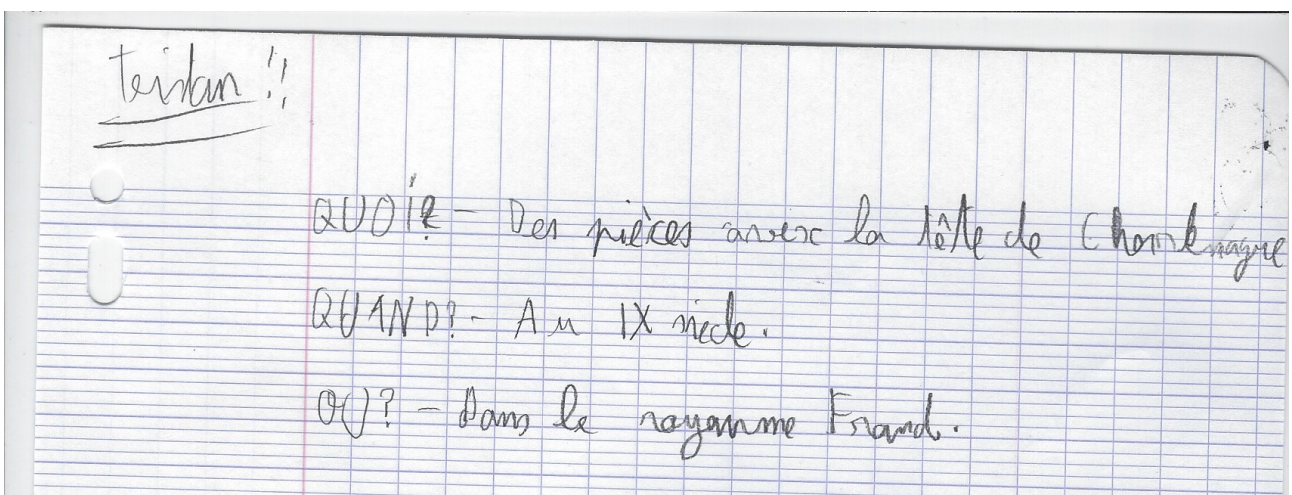 Teistan !!
QUOI? - Des pièces avec la tête de Charlemagne
QUAND? - Au IX siecle.
OU? - Dans le royaume Frand.